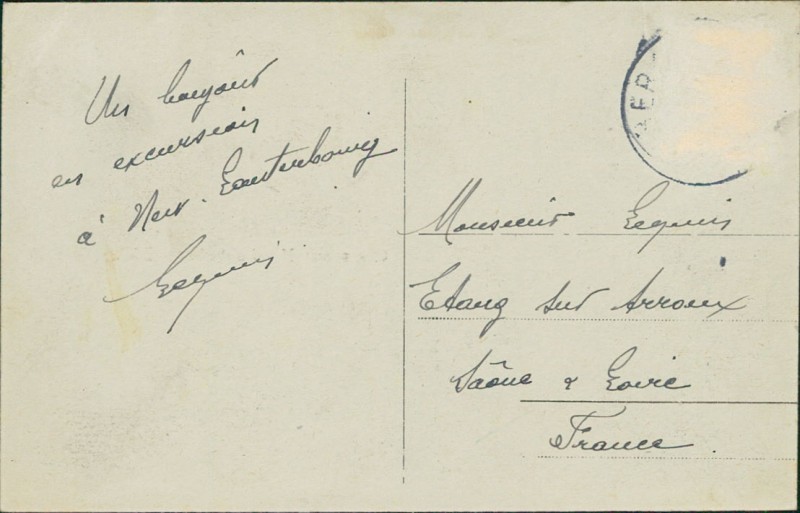 Un bonjour
en excursion
à Neu-Lauterbourg
Lequin
Monsieur Lequin
Etang sur Arroux
Saône & Loire
France